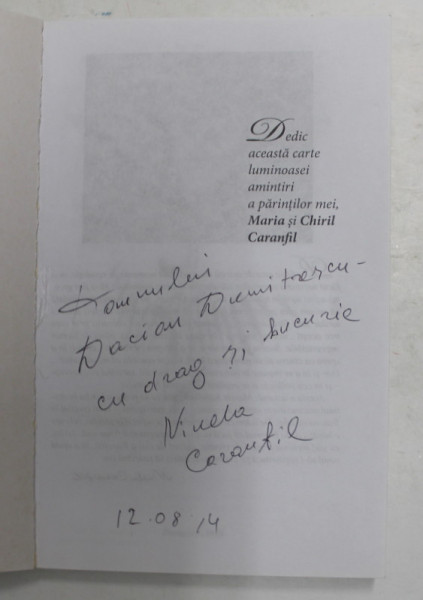 Dedic
această carte
luminoasei
amintiri
a părinților mei,
Maria și Chiril
Caranfil
Domnului
Dacian Dumitrescu -
cu drag și bucurie
Ninela
Caranfil
12.08.14